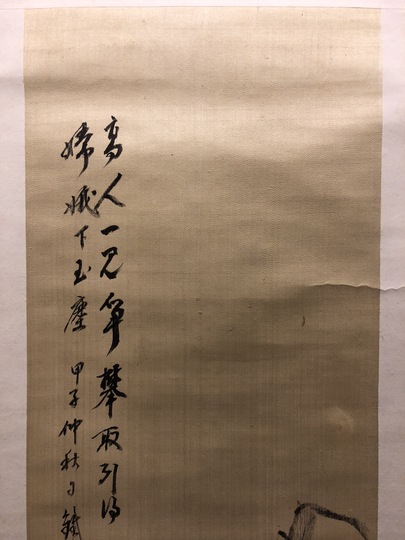 高人一見筆攀取引得
嫦娥下玉塵 甲子仲秋日鐵